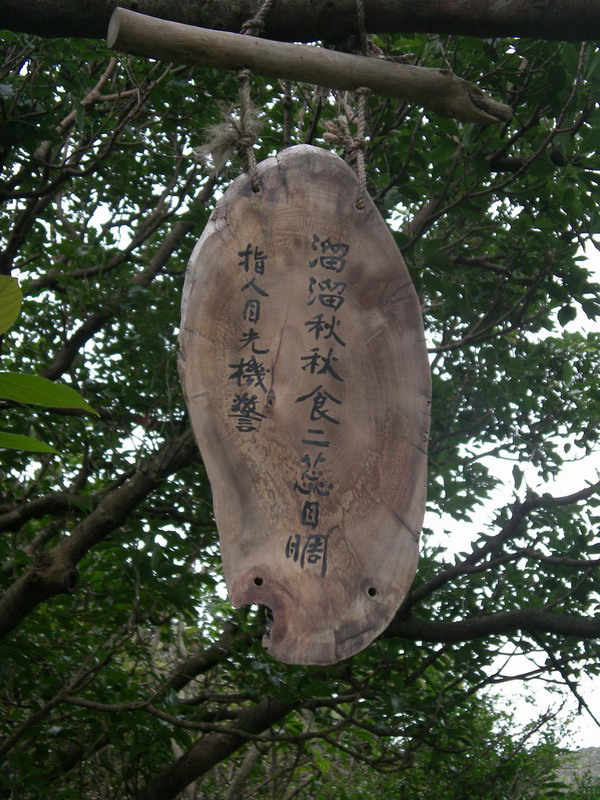 溜溜秋秋食二蕊目睭
指人目光機警